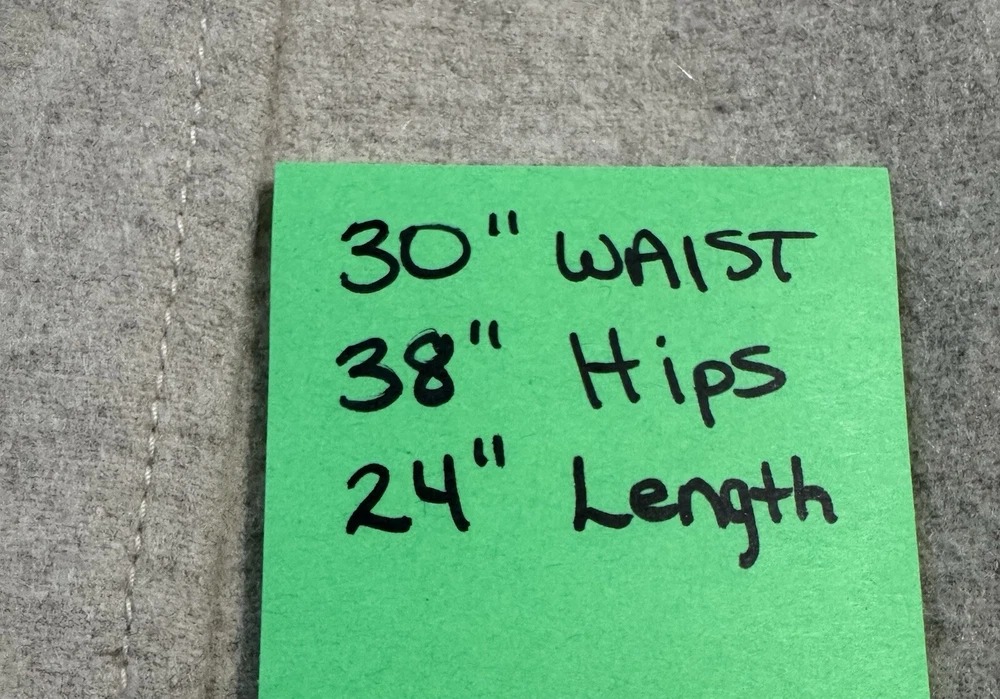 30" WAIST
38" Hips
24" Length